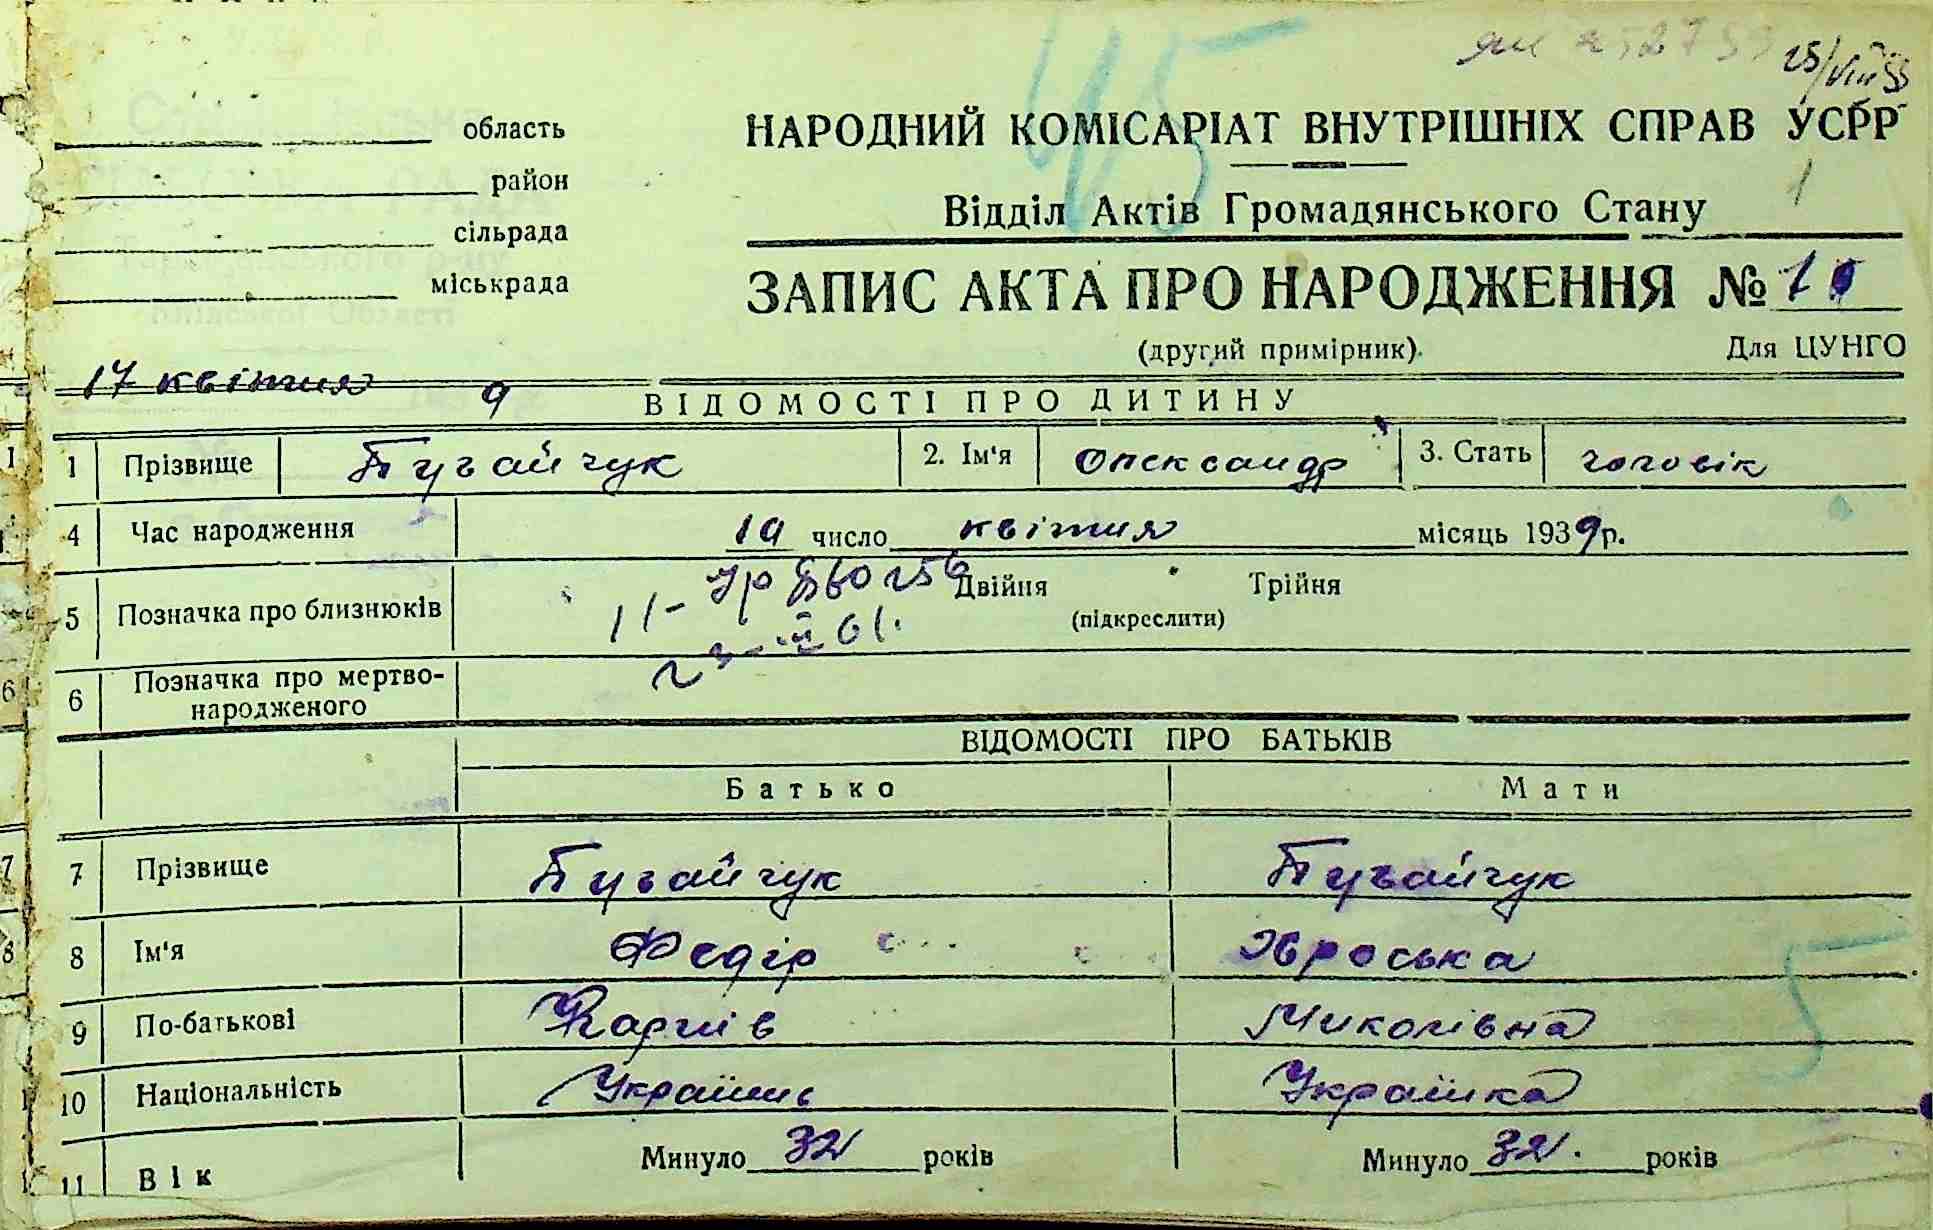 25/VIII 55
область
район
сільрада
міськрада
НАРОДНИЙ КОМІСАРІАТ ВНУТРІШНІХ СПРАВ УСРР
1
Відділ Актів Громадянського Стану
ЗАПИС АКТА ПРО НАРОДЖЕННЯ №
(другий примірник). Для ЦУНГО
17 квітня 9
ВІДОМОСТІ ПРО ДИТИНУ
1 Прізвище Бугайчук 2. Ім'я Олександр 3. Стать чоловік
4 Час народження 10 число квітня місяць 1939 р.
5 Позначка про близнюків Двійня Трійня
(підкреслити)
6 Позначка про мертво-
народженого
ВІДОМОСТІ ПРО БАТЬКІВ
Батько Мати
7 Прізвище Бугайчук Бугайчук
8 Ім'я Федір Явроська
9 По-батькові Карпів Миколівна
10 Національність Українець Українка
11 Вік Минуло 32 років Минуло 32. років
45
5